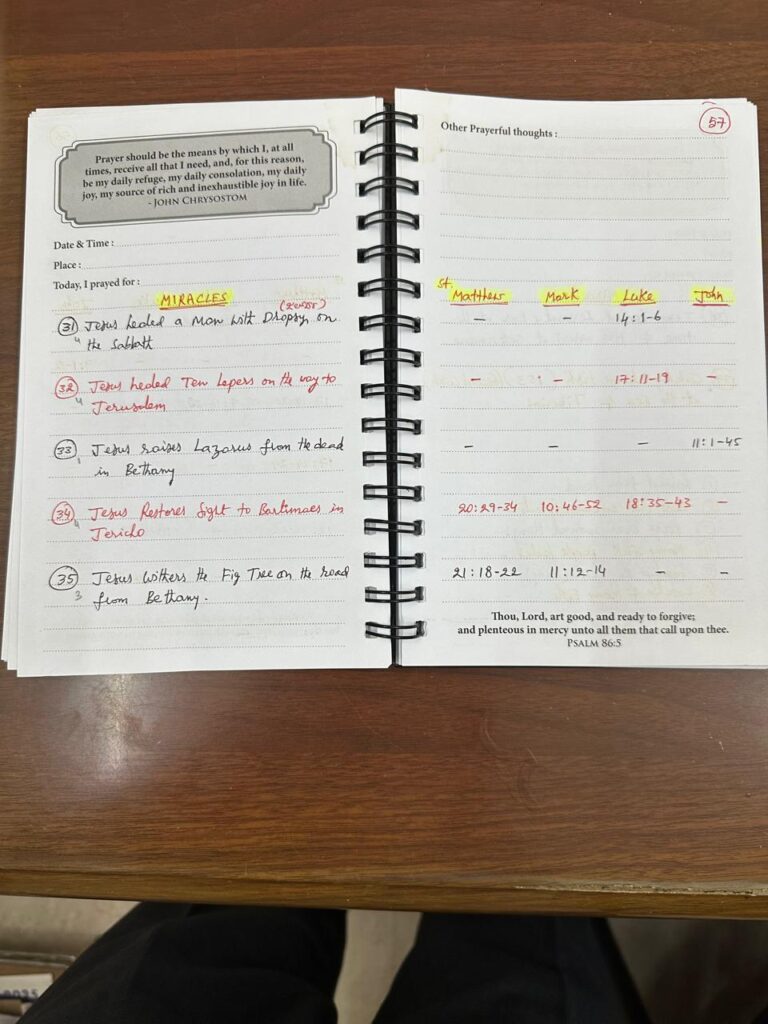 Prayer should be the means by which I, at all
times, receive all that I need, and, for this reason,
be my daily refuge, my daily consolation, my daily
joy, my source of rich and inexhaustible joy in life.
- JOHN CHRYSOSTOM
Date & Time :
Place :
Today, I prayed for :
MIRACLES
31 Jesus healed a Man with Dropsy on
4 the Sabbath
32 Jesus healed Ten Lepers on the way to
4 Jerusalem
33 Jesus raises Lazarus from the dead
1 in Bethany
34 Jesus Restores Sight to Bartimaes in
4 Jericho
35 Jesus withers the Fig Tree on the road
3 from Bethany.
57
Other Prayerful thoughts :
St. Matthew Mark Luke John
- - 14:1-6
- - 17:11-19 -
- - - 11:1-45
20:29-34 10:46-52 18:35-43 -
21:18-22 11:12-14 - -
Thou, Lord, art good, and ready to forgive;
and plenteous in mercy unto all them that call upon thee.
PSALM 86:5